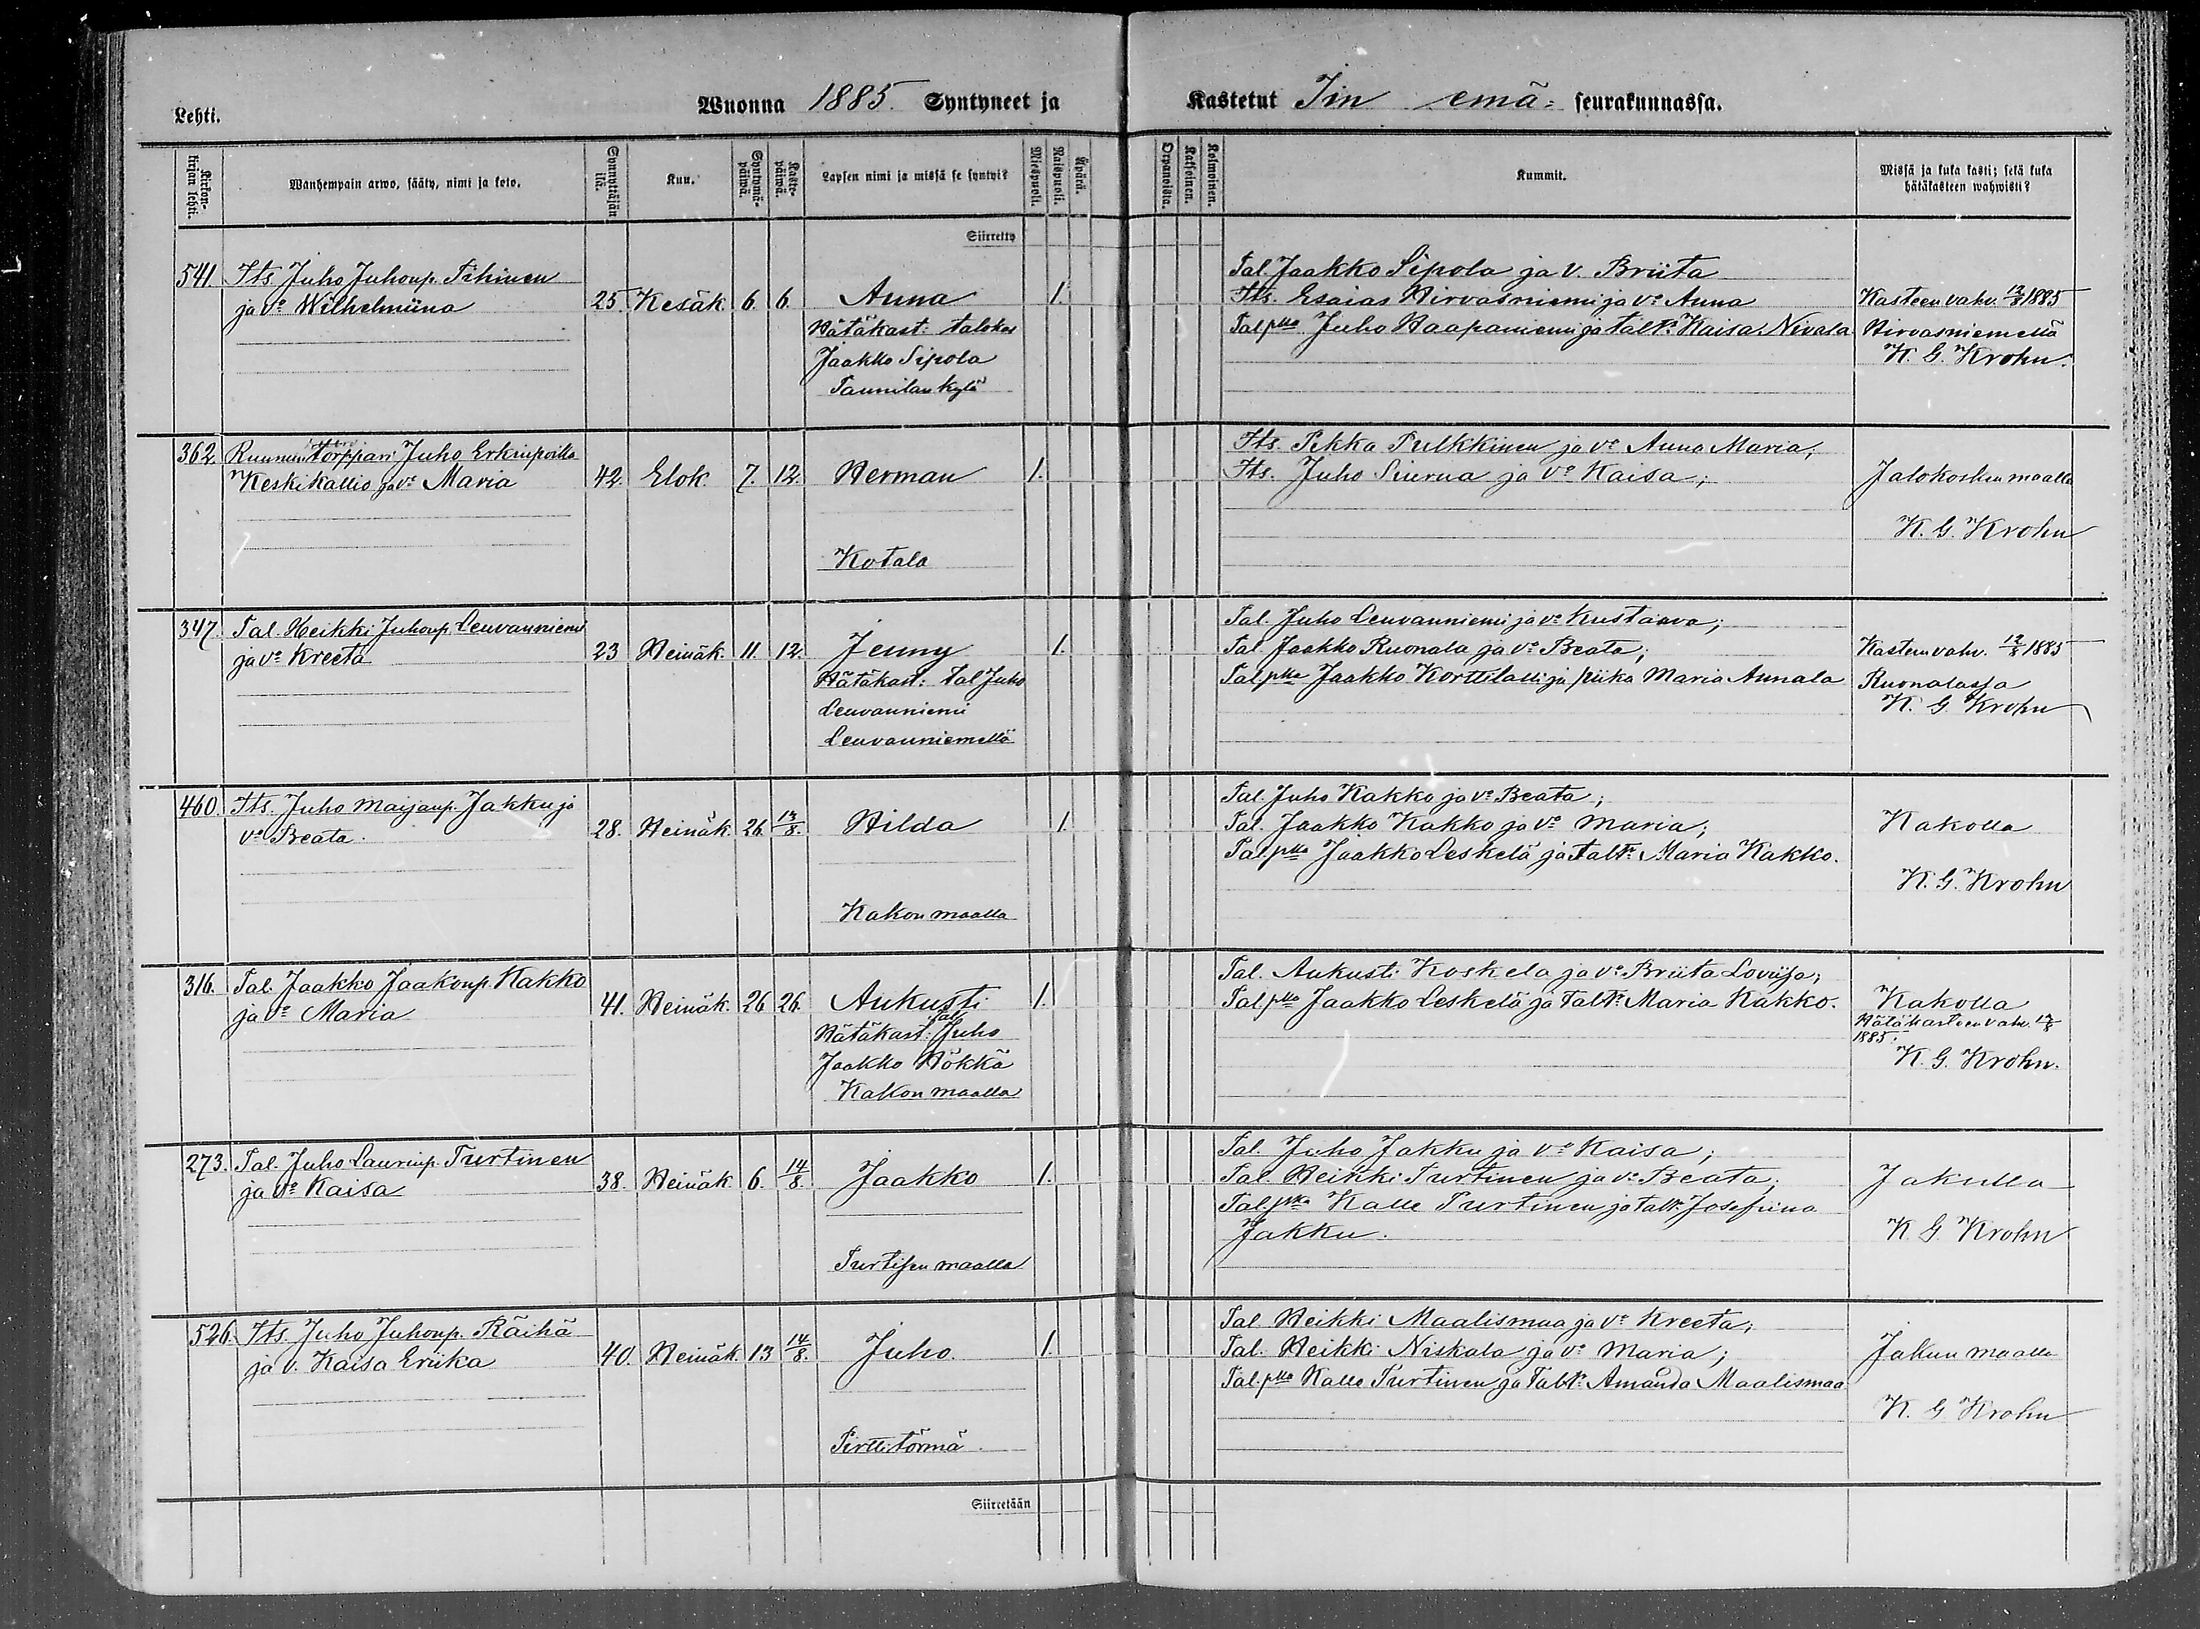 Lehti.
Wuonna 1885. Syntyneet ja
Kastetut Iin emä= seurakunnassa.
Kirkon-kirjan lehti.
Wanhempain arwo, sääty, nimi ja koto.
Synnyttäjän ikä.
Kuu.
Syntymä-päiwä.
Kaste-päiwä.
Lapsen nimi ja missä se syntyi?
Miespuoli.
Naispuoli.
Äpärä.
Orpanoista.
Kaksoinen.
Kolmoinen.
Kummit.
Missä ja kuka kasti; sekä kuka hätäkasteen wahwisti?
Siirretty
541. Its. Juho Juhonp. Tihinen
ja vo Wilhelmiina
25. Kesäk. 6. 6. Anna 1.
Hätäkast: talokas
Jaakko Sipola
Taunilan kylä
Tal. Jaakko Sipola ja v. Briita
Its. Esaias Hirvasniemi ja vo Anna
Tal pka Juho Haapaniemi ja tal tr Kaisa Nivala
Kasteen vahv. 12/8 1885
Hirvasniemellä
K. G. Krohn.
362. Ruunun torppari Juho Erkinpoika
Keskikallio ja vo Maria
42. Elok. 7. 12. Herman 1.
Kotala
Its. Pekka Pulkkinen ja vo Anna Maria;
Its. Juho Siurua ja vo Kaisa;
Jalokosken maalla
K. G. Krohn
347. Tal. Heikki Juhonp. Leuvanniemi
ja vo Kreeta
23 Heinäk. 11. 12. Jenny 1.
Hätäkast: tal Juho
Leuvanniemi
Leuvanniemellä
Tal. Juho Leuvanniemi ja vo Kustaava;
Tal Jaakko Ruonala ja vo Beata;
Tal pka Jaakko Korttilalli ja piika Maria Annala
Kasteen vahv. 12/8 1885
Ruonalassa
K. G. Krohn
460. Its. Juho Maijanp. Jakku ja
vo Beata.
28. Heinäk. 26. 13/8. Hilda 1.
Kakon maalla
Tal. Juho Kakko ja vo Beata;
Tal. Jaakko Kakko ja vo Maria;
Tal pka Jaakko Leskelä ja tal tr. Maria Kakko.
Kakolla
K. G. Krohn
316. Tal. Jaakko Jaakonp. Kakko
ja vo Maria
41. Heinäk. 26 26. Aukusti 1.
Hätäkast: tal Juho
Jaakko Hökkä
Kakon maalla
Tal. Aukusti Koskela ja vo Briita Loviisa;
Tal pka Jaakko Leskelä ja tal tr. Maria Kakko.
Kakolla
Hätäkasteen vahv. 13/8
1885.
K. G. Krohn.
273. Tal. Juho Laurinp. Turtinen
ja vo Kaisa
38. Heinäk. 6. 14/8. Jaakko 1.
Turtisen maalla
Tal. Juho Jakku ja vo Kaisa;
Tal. Heikki Turtinen ja vo Beata;
Tal. pka Kalle Turtinen ja tal tr Josefiina
Jakku.
Jakulla
K. G. Krohn
526. Its. Juho Juhonp. Räihä
ja v. Kaisa Eriika
40. Heinäk. 13 14/8. Juho. 1.
Pirttitörmä.
Tal. Heikki Maalismaa ja vo Kreeta;
Tal. Heikki Niskala ja vo Maria;
Tal. pka Kalle Turtinen ja tal tr. Amanda Maalismaa
Jakun maalla
K. G. Krohn
Siirretään